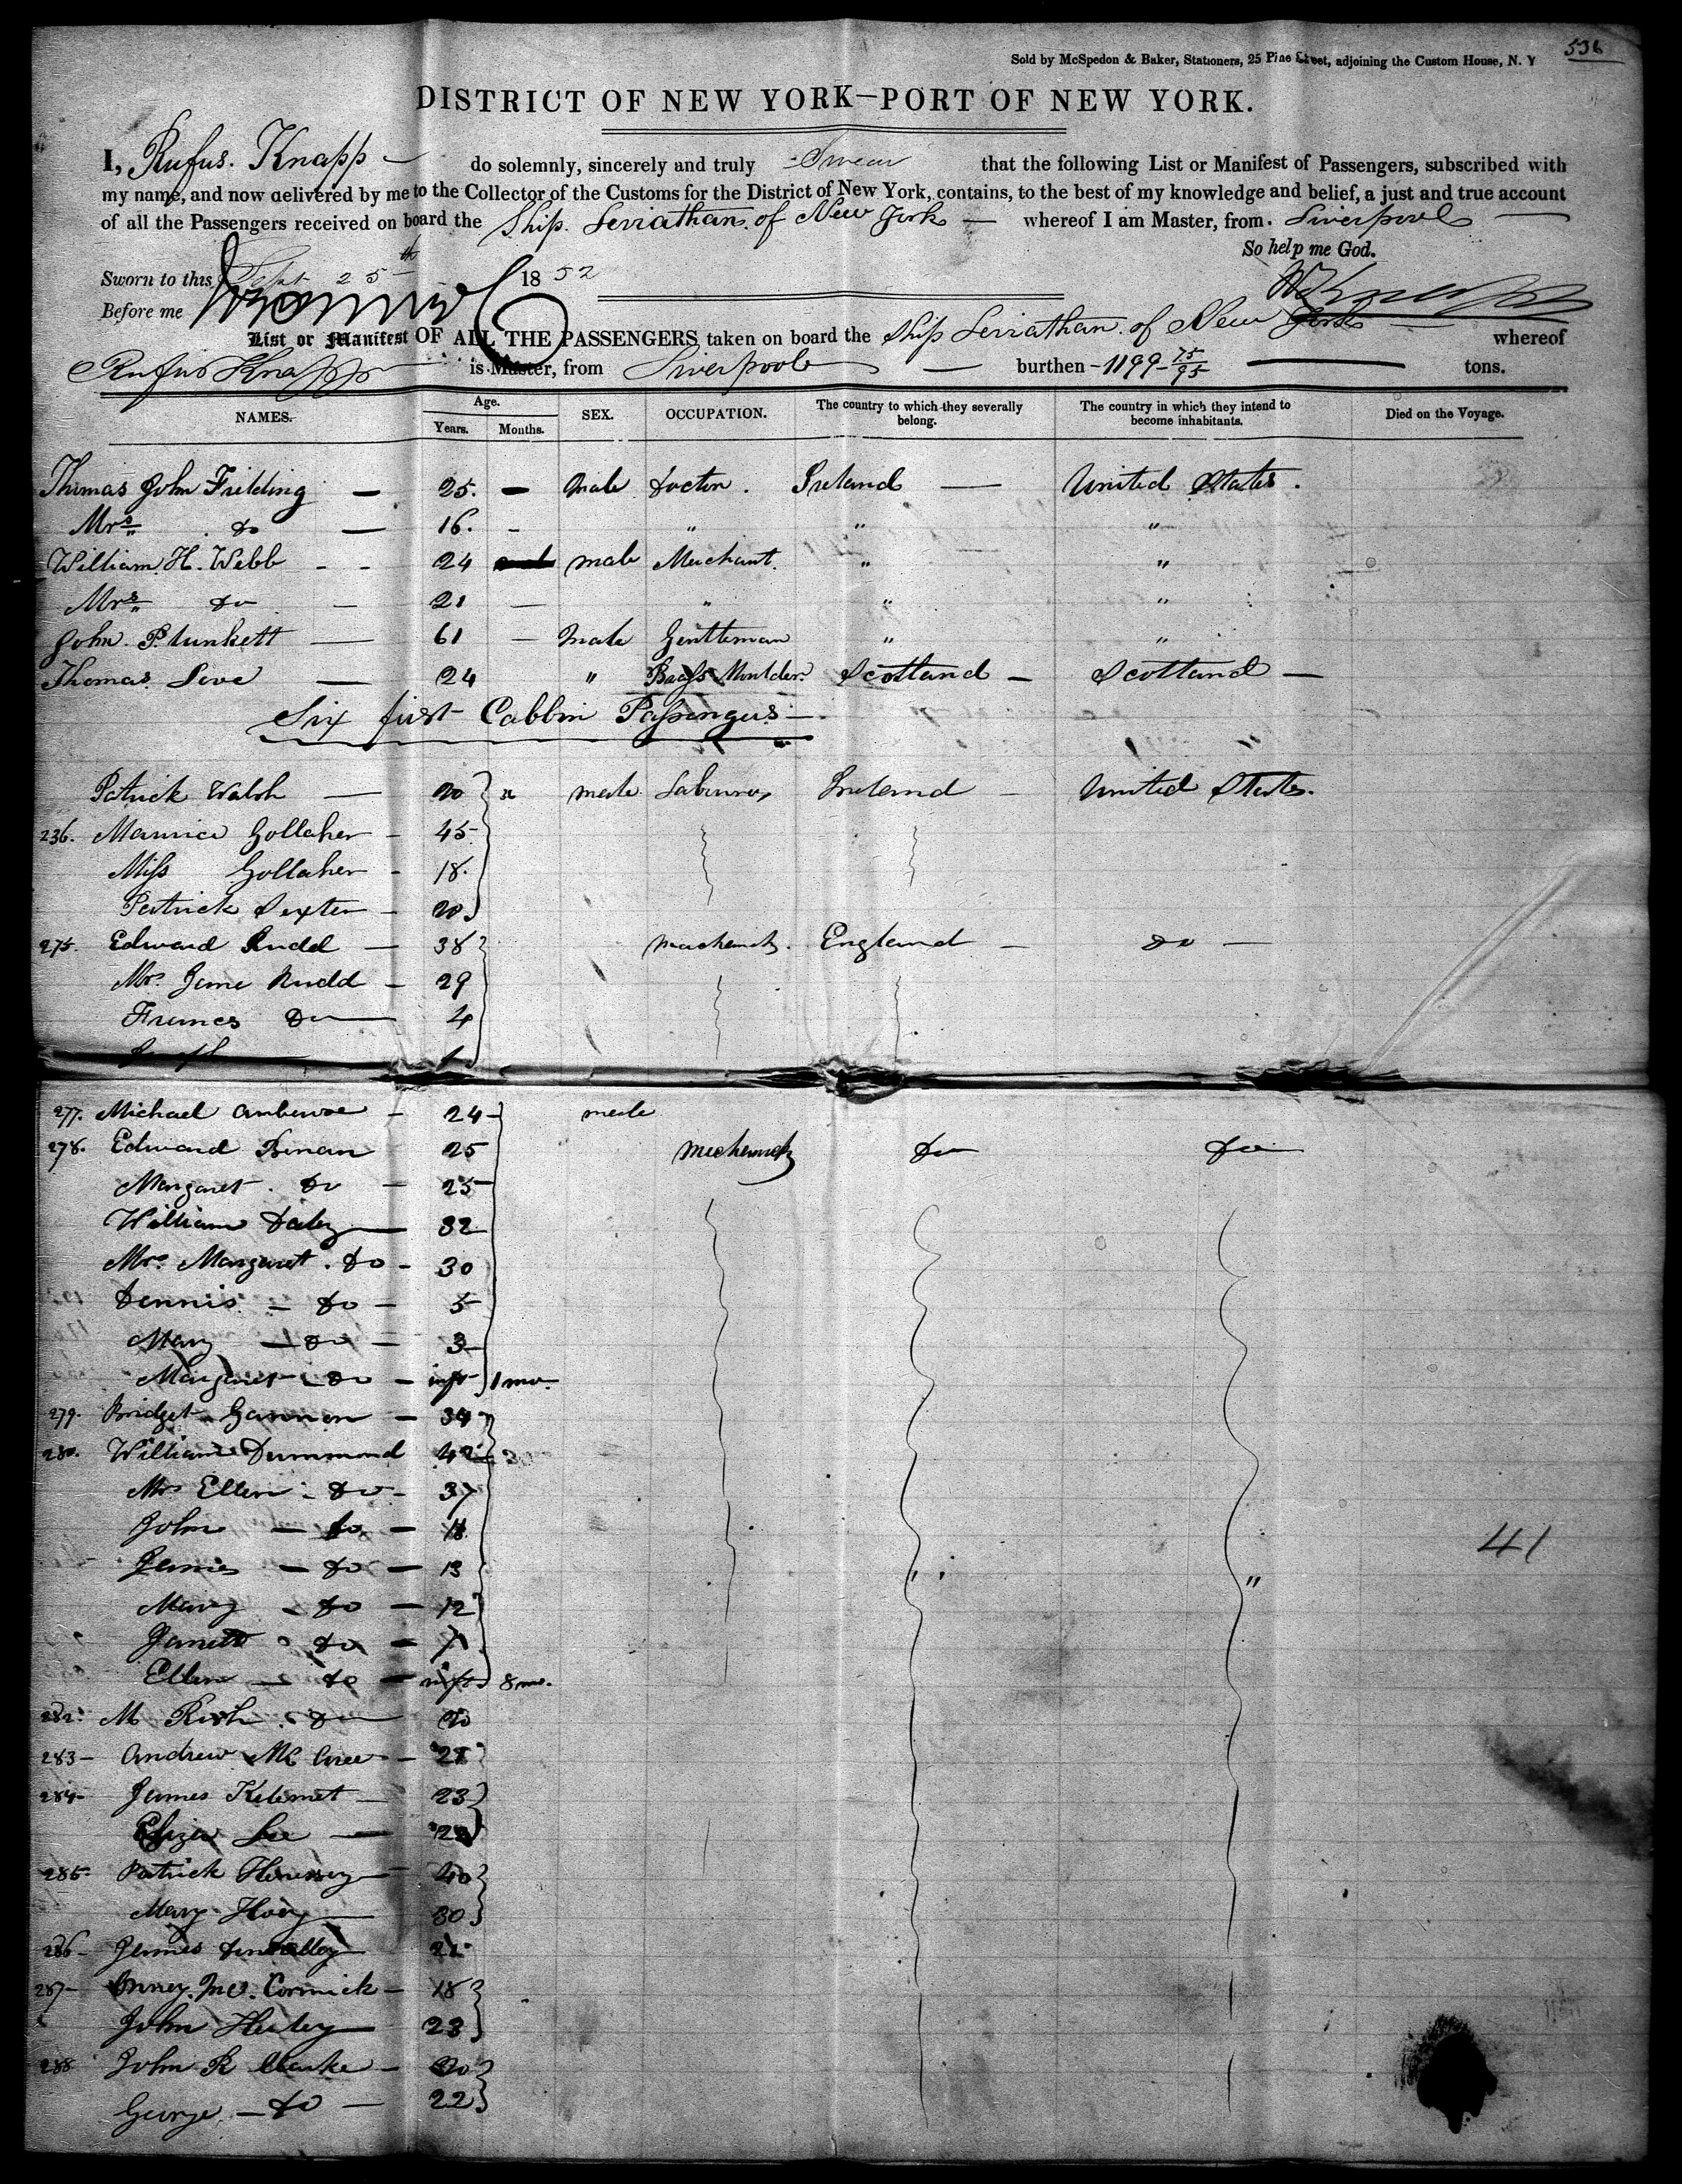 536
Sold by McSpedon & Baker, Stationers, 25 Pine Street, adjoining the Custom House, N. Y
DISTRICT OF NEW YORK—PORT OF NEW YORK.
I, Rufus. Knapp do solemnly, sincerely and truly Swear that the following List or Manifest of Passengers, subscribed with
my name, and now delivered by me to the Collector of the Customs for the District of New York, contains, to the best of my knowledge and belief, a just and true account
of all the Passengers received on board the Ship. Leviathan. of New York — whereof I am Master, from. Liverpool —
So help me God.
Sworn to this Sept 25th 1852
Before me
List or Manifest OF ALL THE PASSENGERS taken on board the Ship Leviathan. of New York — whereof
Rufus Knapp is Master, from Liverpool — burthen - 1199 - 75/95 — tons.
NAMES. Age. Years. Months. SEX. OCCUPATION. The country to which they severally belong. The country in which they intend to become inhabitants. Died on the Voyage.
Thomas John Fielding — 25. — Male Doctor. Ireland — United States.
Mrs. do — 16. - " " "
William. H. Webb - - 24 male Merchant. " "
Mrs. do — 21 — " " "
John. Plunkett — 61 — Male Gentleman " "
Thomas. Love — 24 " Brass Moulder. Scotland — Scotland —
Six first Cabbin Passengers —
Patrick Walsh — 20 " male Labourer Ireland — United States.
236. Maurice Gollaher - 45
Miss Gollaher - 18.
Patrick Sexter - 20
275. Edward Rudd — 38 Mechanick. England — do —
Mrs. Jane Rudd - 29
Frances Do — 4
Joseph 1
277. Michael - 24 - male
278. Edward 25 Mechanick Do Do
Margaret. Do - 25
William Daley — 32
Mrs. Margaret. Do - 30
Dennis. - Do - 5
Mary — Do — 3
Margaret - Do - inft 1 mo.
279. Bridget Gannon — 34
280. William Dummond 42
Mrs Ellen - Do - 37
John — Do — 18
James — Do — 13 " "
41
Mary - Do — 12
Janett Do — 7
Ellen — Do — inft 8 mo.
282. M Rish. Do — 20
283 - Andrew Mc Cree - 21
284 - James — 23
Eliza Lee — 22
285. Patrick Henessey — 40
Mary Hoey — 30
286 - James 21
287 - Mc. Cormick - 18
John Heley — 23
288 John R Clarke - 20
George — Do — 22